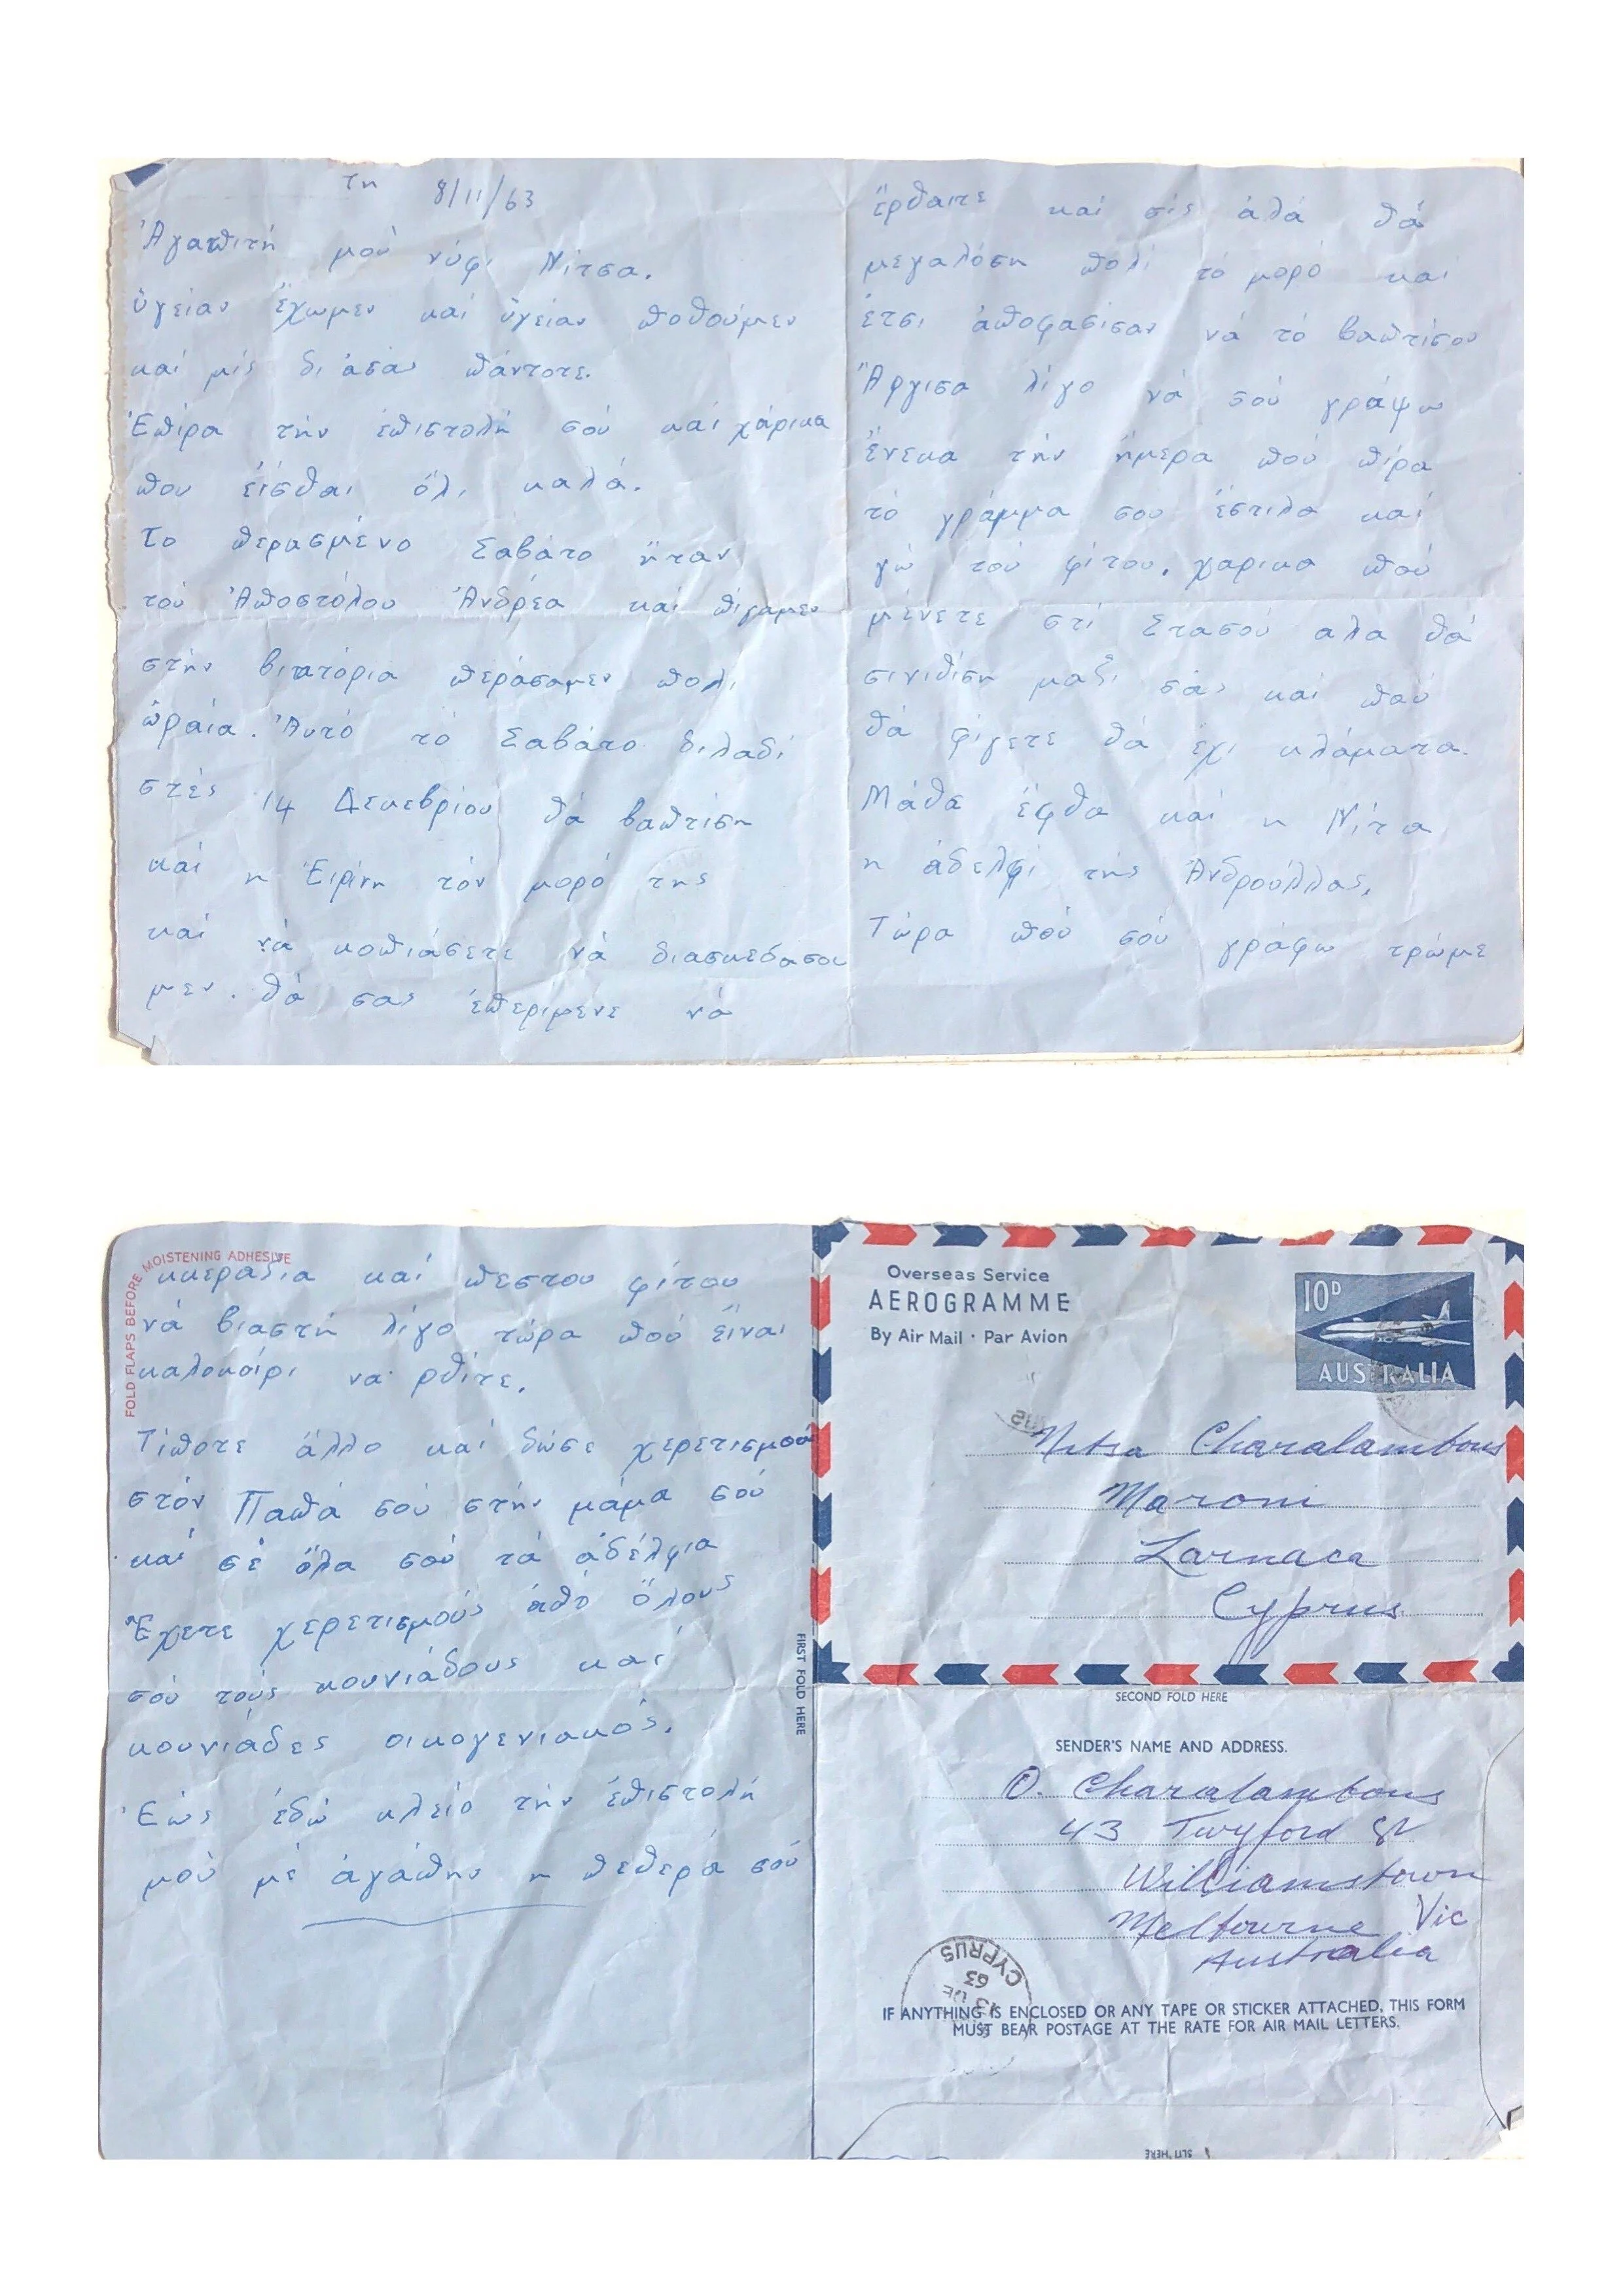 τη 8/11/63
Ἀγαπιτή μού νύφι Νίτσα.
ὑγείαν ἔχωμεν καί ὑγείαν ποθούμεν
καί μίς δι ἀσάς πάντοτε.
Ἐπίρα τήν ἐπιστολή σού καί χάρικα
που εἴσθαι ὅλι καλά.
Το περασμένο Σαβάτο ἤταν
τού Ἀποστόλου Ἀνδρέα καί πίγαμεν
στήν βικτόρια περάσαμεν πολι
ὡραία. Ἀυτό τό Σαβάτο διλαδί
στές 14 Δεκεβρίου θά βαπτιση
καί η Ἐιρίνη τόν μορό της
καί νά κοπιάσετε νά διασκεδασου
μεν. θά σας ἐπεριμενε νά
ἔρθαιτε καί σίς ἀλά θά
μεγαλόση πολί τό μορό καί
ἔτσι ἀποφασισαν νά τό βαπτίσου
Ἄργισα λίγο νά σού γράψω
ἔνεκα τήν ἡμερα πού πίρα
τό γράμμα σου ἔστιλα καί
γώ τού φίτου. χαρικα πού
μένετε στί Στασού αλα θά
σινιθίση μαζί σάς καί πού
θά φίγετε θά ἔχι κλάματα.
Μάθα ἐρθα καί η Νίτα
η ἀδελφί τής Ἀνδρούλλας.
Τώρα πού σού γράφω τρώμε
FOLD FLAPS BEFORE MOISTENING ADHESIVE
κκεράδια καί πεστου φίτου
νά βιαστή λίγο τώρα πού εἴναι
καλοκαίρι να ρθίτε.
Τίποτε ἄλλο καί δώσε χερετισμού
στόν Παπά σού στήν μάμα σού
καί σέ ὅλα σού τά ἀδέλφια
Ἔχετε χερετισμούς ἀπό ὅλους
σού τούς κουνιάδους καί
κουνιάδες οικογενιακός.
Ἐώς ἐδώ κλείο τήν ἐπιστολή
μού μέ ἀγάπην η πεθερά σού
FIRST FOLD HERE
Overseas Service
AEROGRAMME
By Air Mail · Par Avion
10D
AUSTRALIA
Nitsa Charalambous
Maroni
Larnaca
Cyprus
SECOND FOLD HERE
SENDER'S NAME AND ADDRESS.
O. Charalambous
43 Twyford St
Williamstown
Melbourne Vic
Australia
CYPRUS
13 DE
63
IF ANYTHING IS ENCLOSED OR ANY TAPE OR STICKER ATTACHED, THIS FORM
MUST BEAR POSTAGE AT THE RATE FOR AIR MAIL LETTERS.
SLIT HERE